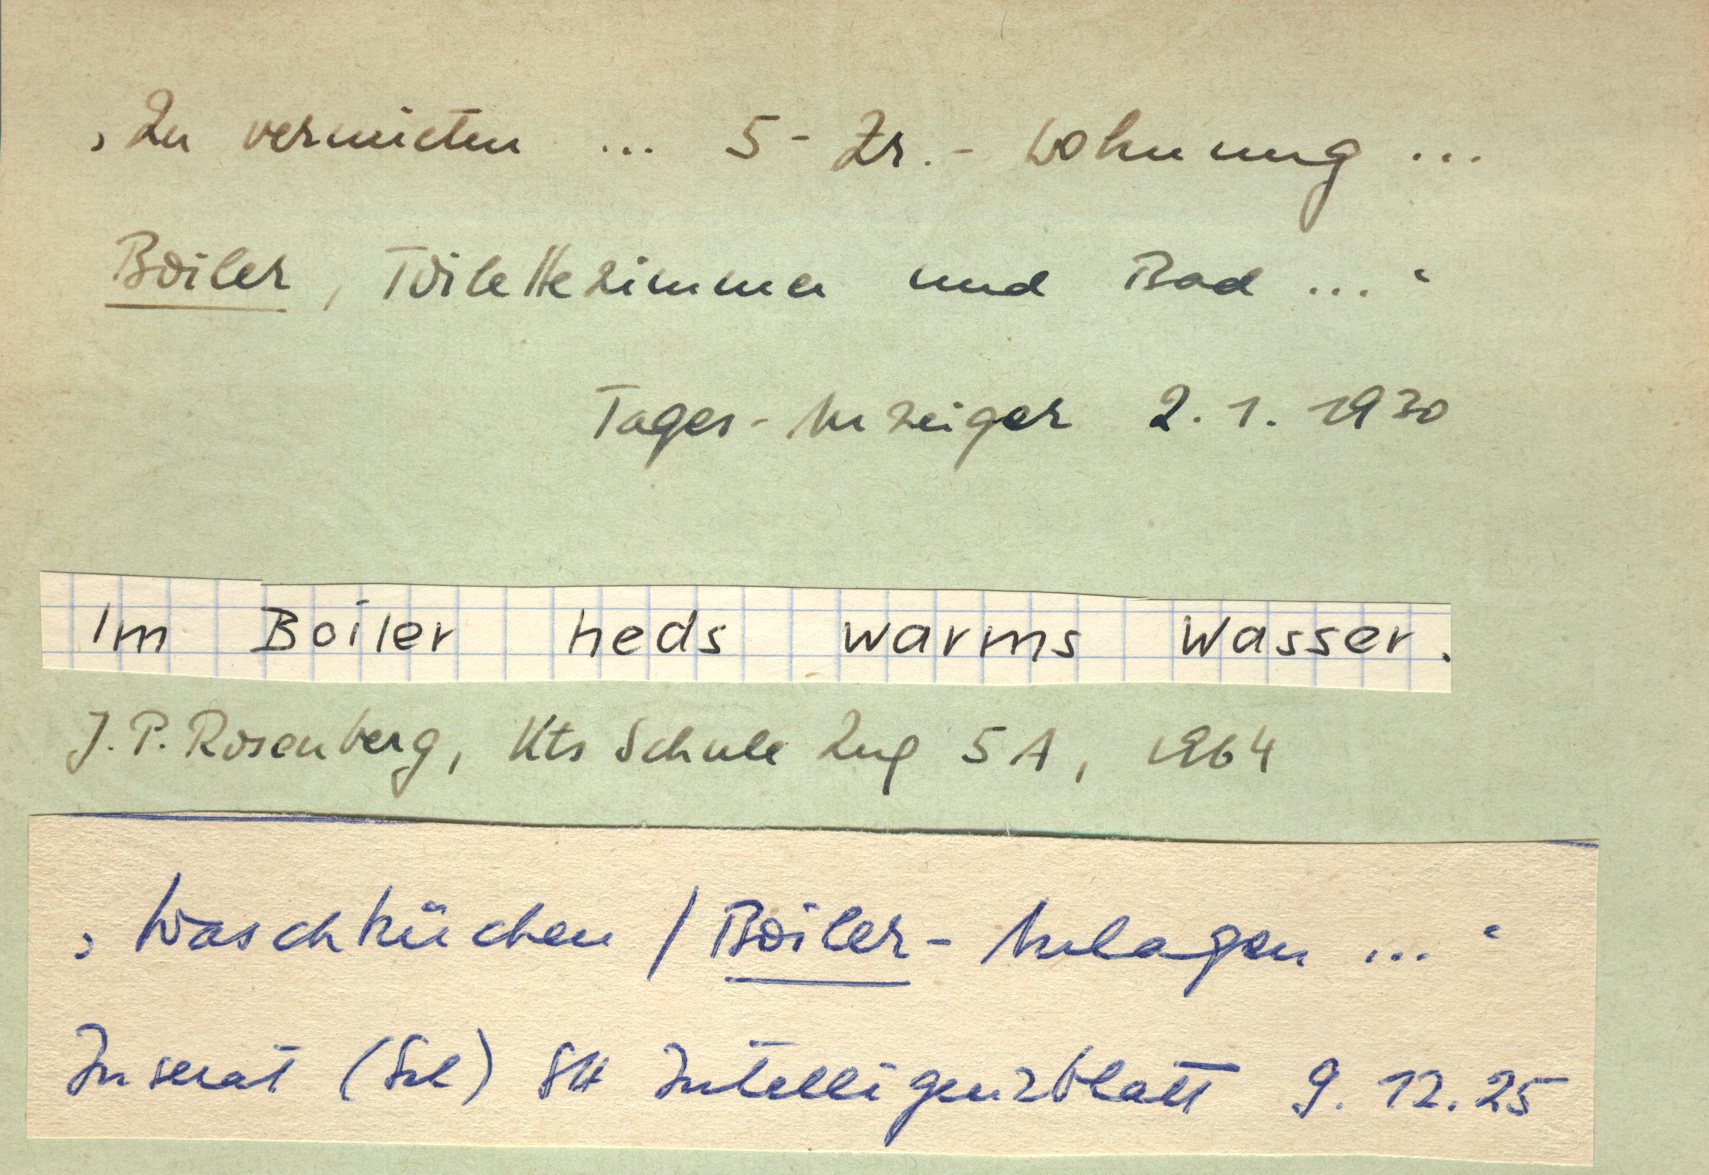 ‚Zu vermieten ... 5-Zr.-Wohnung ...
Boiler, Toilettezimmer und Bad ...‘
Tages-Anzeiger 2.1.1930
Im Boiler heds warms Wasser.
J.P. Rosenberg, Kts Schule Zug 5A, 1964
‚Waschküchen / Boiler-Anlagen ...‘
Inserat (Sch) SH Intelligenzblatt 9.12.25